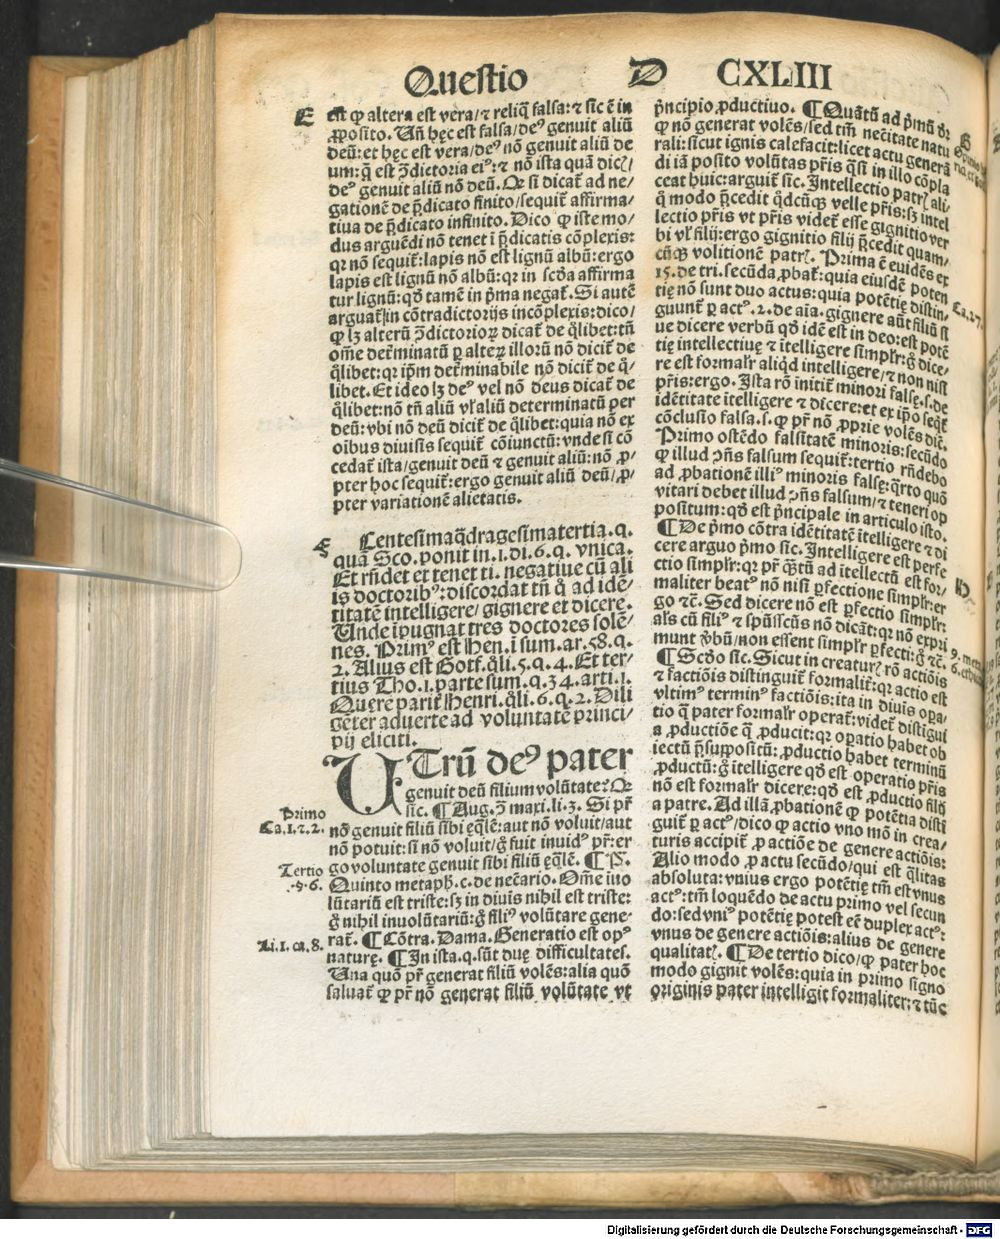 Questio D CXLIII
E
est qɔ altera est vera/⁊ reliq̄ falsa:⁊ sic ē in
ꝓposito. Un̄ hęc est falsa/deꝰ genuit aliū
deū:et hęc est vera/deꝰ nō genuit aliū de
um:q̄ est ꝯ̄dictoria eiꝰ:⁊ nō ista quā dic̄/
deꝰ genuit aliū nō deū. Qꝛ si dicat̄ ad ne/
gationē de p̄dicato finito/sequit̄ affirma/
tiua de p̄dicato infinito. Dico ꝙ iste mo/
dus arguēdi nō tenet ī p̄dicatis cōplexis:
qꝛ nō sequit̄:lapis nō est lignū albū:ergo
lapis est lignū nō albū:qꝛ in scd̄a affirma
tur lignū:qd̄ tamē in p̄ma negat̄. Si autē
arguat̄ in cōtradictorijs incōplexis:dico/
ꝙ lꝫ alterū ꝯ̄dictorioꝝ dicat̄ de q̄libet:tn̄
om̄e det̄minatū ꝑ alteꝝ illorū nō dicit̄ de
q̄libet:qꝛ ip̄m det̄minabile nō dicit̄ de q̄/
libet. Et ideo lꝫ deꝰ vel nō deus dicat̄ de
q̄libet:nō tn̄ aliū vl̄ aliū determinatū per
deū:vbi nō deū dicit̄ de q̄libet:quia nō ex
oībus diuisis sequit̄ cōiunctū:vnde si cō
cedat̄ ista/genuit deū ⁊ genuit aliū:nō ꝓ/
pter hoc sequit̄:ergo genuit aliū deū/ꝓ/
pter variationē alietatis.
F
Centesimaq̄dragesimatertia.q.
quā Sco.ponit in.1.di.6.q. vnica.
Et rn̄det et tenet ti. negatiue cū ali
is doctoribꝰ:discordat tn̄ q̄ ad idē/
titatē intelligere/gignere et dicere.
Unde īpugnat tres doctores solē/
nes. Primꝰ est Hen.ī sum.ar.58.q.
2. Alius est Gotf.q̄li.5.q.4. Et ter/
tius Tho.1.parte sum.q.34.arti.1.
Quere parit̄ Henri.q̄li.6.q.2. Dili
gēter aduerte ad voluntatē princi/
pij eliciti.
UTrū deꝰ pater
genuit deū filium volūtate? Qꝛ
sic. ¶ Aug.ꝯ̄ maxi.li.3. Si pr̄
Primo
Ca.1.⁊.2.
nō genuit filiū sibi eq̄lē:aut nō voluit/aut
nō potuit:si nō voluit/g̊ fuit inuidꝰ pr̄:er
go voluntate genuit sibi filiū eq̄lē. ¶ P̄.
Tertio
.9.6.
Quinto metaph̄.c.de nec̄ario. Om̄e iuo
lūtariū est triste:sꝫ in diuis nihil est triste:
g̊ nihil inuolūtariū:g̊ filiꝰ volūtare gene-
rat̄. ¶ Cōtra. Dama. Generatio est opꝰ
Li.1.ca.8.
naturę. ¶ In ista.q.sūt duę difficultates.
Una quō pr̄ generat filiū volēs:alia quō
saluat̄ ꝙ pr̄ nō generat filiū volūtate vt
p̄ncipio ꝓductiuo. ¶ Quātū ad p̄mū
ꝙ nō generat volēs/sed tm̄ nec̄itate natu
rali:sicut ignis calefacit:licet actu generā
di iā posito volūtas pr̄is q̄si in illo cōpla
ceat huic:arguit̄ sic. Intellectio patrꝭ ali/
q̄ modo p̄cedit qd̄cūqꝫ velle pr̄is:sꝫ intel
lectio pr̄is vt pr̄is videt̄ esse gignitio ver
bi vl̄ filij:ergo gignitio filij p̄cedit quam/
cūqꝫ volitionē patrꝭ. Prima ē euidēs ex
15.de tri.secūda ꝓbat̄:quia eiusdē poten
tię nō sunt duo actus:quia potētię distin/
Ca.27.
guunt̄ ꝑ actꝰ.2.de aīa.gignere aūt filiū sī
ue dicere verbū qd̄ idē est in deo:est potē
tię intellectiuę ⁊ ītelligere simpl̄r:g̊ dice/
re est formal̄r aliqd̄ intelligere/⁊ non nisi
pr̄is:ergo. Ista rō initit̄ minori falsę.s.de
idētitate ītelligere ⁊ dicere:et ex ip̄o seqt̄
cōclusio falsa.s.ꝙ pr̄ nō ꝓprie volēs dic̄.
Primo ostēdo falsitatē minoris:secūdo
ꝙ illud ꝯn̄s falsum sequit̄:tertio rn̄debo
ad ꝓbationē illiꝰ minoris falsę:q̄rto quō
vitari debet illud ꝯn̄s falsum/⁊ teneri op
positum:qd̄ est p̄ncipale in articulo isto.
¶ De p̄mo cōtra idētitatē ītelligere ⁊ di
cere arguo p̄mo sic. Intelligere est perfe
ctio simpl̄r:qꝛ pr̄ q̄tū ad ītellectū est for/
maliter beatꝰ nō nisi ꝑfectione simpl̄r:er
go ⁊c̄. Sed dicere nō est ꝑfectio simpl̄r:
al̄s cū filiꝰ ⁊ spūssc̄us nō dicāt:qꝛ nō expri
munt v̄bū/non essent simpl̄r ꝑfecti:g̊ ⁊c̄.
¶ Scd̄o sic. Sicut in creaturꝭ rō actiōis
⁊ factiōis distinguit̄ formalit̄:qꝛ actio est
vltimꝰ terminꝰ factiōis:ita in diuis opa/
tio q̄ pater formal̄r operat̄:videt̄ distigui
a ꝓductiōe q̄ ꝓducit:qꝛ oꝑatio habet ob
iectū p̄suppositū:ꝓductio habet terminū
ꝓductū:g̊ ītelligere qd̄ est operatio pr̄is
nō est formal̄r dicere:qd̄ est ꝓductio filij
a patre. Ad illā ꝓbationē ꝙ potētia disti
guit̄ ꝑ actꝰ/dico ꝙ actio vno mō in crea/
turis accipit̄ ꝓ actiōe de genere actiōis:
Alio modo ꝓ actu secūdo/qui est q̄litas
absoluta:vnius ergo potētię tm̄ est vnus
actꝰ:tm̄ loquēdo de actu primo vel secun
do:sed vniꝰ potētię potest eē duplex actꝰ:
vnus de genere actiōis:alius de genere
qualitatꝭ. ¶ De tertio dico/ꝙ pater hoc
modo gignit volēs:quia in primo signo
originis pater intelligit formaliter:⁊ tūc
Digitalisierung gefördert durch die Deutsche Forschungsgemeinschaft - DFG